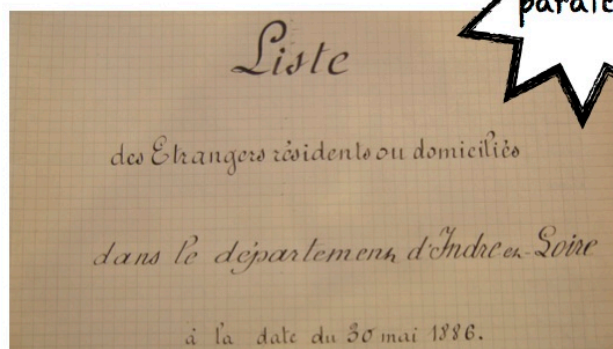 Liste
des Etrangers résidents ou domiciliés
dans le département d'Indre-en-Loire
à la date du 30 mai 1886.